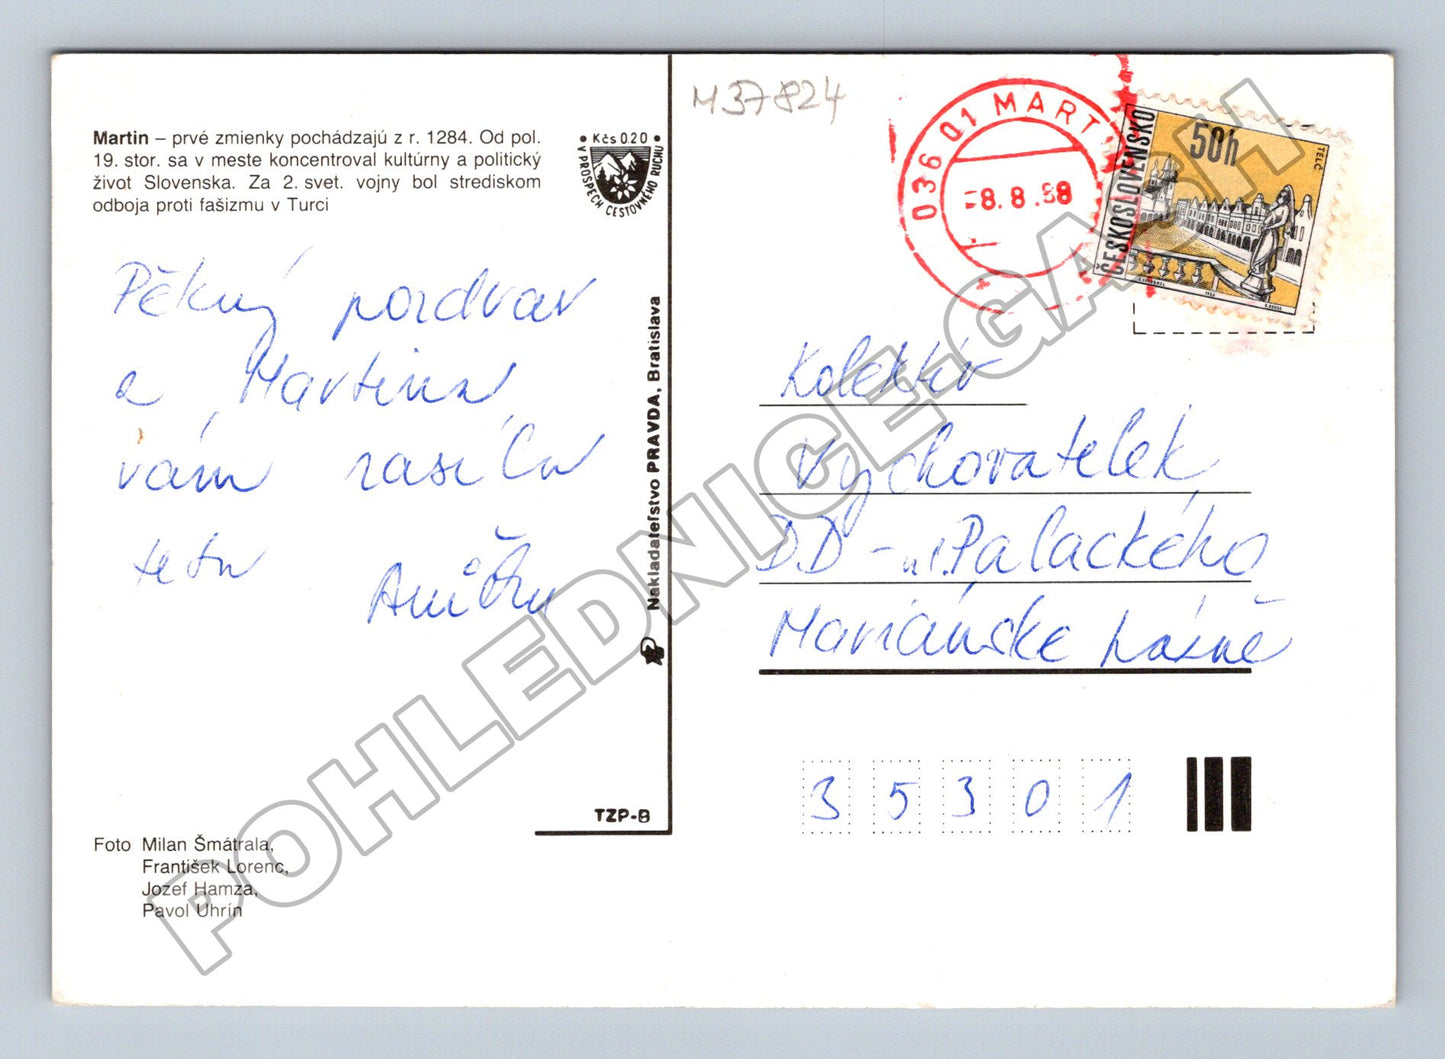 Martin – prvé zmienky pochádzajú z r. 1284. Od pol.
19. stor. sa v meste koncentroval kultúrny a politický
život Slovenska. Za 2. svet. vojny bol strediskom
odboja proti fašizmu v Turci
• Kčs 0.20 •
V PROSPECH CESTOVNÉHO RUCHU
Pěkný pozdrav
z Martina
vám zasílá
teta
Nakladateľstvo PRAVDA, Bratislava
TZP-B
Foto Milan Šmátrala,
František Lorenc,
Jozef Hamza,
Pavol Uhrín
M37824
036 01 MARTIN
-8.8.88
ČESKOSLOVENSKO
50h
TELČ
Kolektiv
Vychovatelek
DD - ul. Palackého
Mariánske Lázně
35301
POHLEDNICE-GASH